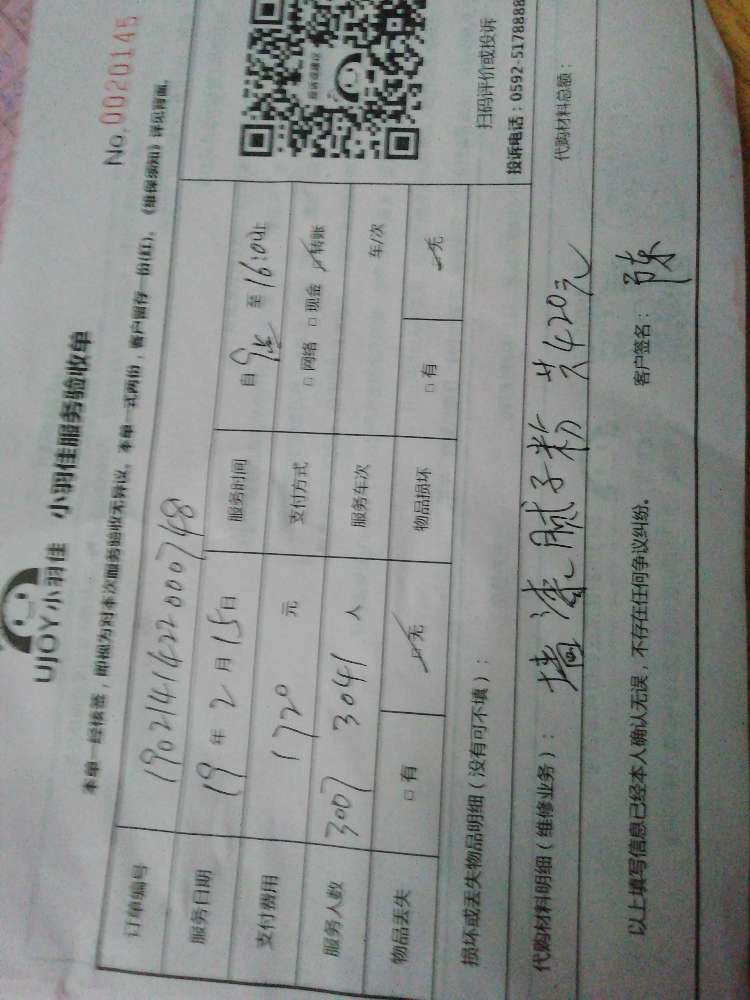 UJOY小羽佳 小羽佳服务验收单
No.0020145
本单一经核签，即视为对本次服务验收无异议。本单一式两份，客户留存一份(红)。《维保须知》详见背面。
订单编号 1902141422000748
服务日期 19 年 2 月 15 日 服务时间 自 至 16:04止
支付费用 1720 元 支付方式 □ 网络 □ 现金 ☑ 转账
服务人数 3007 3041 人 服务车次 车/次
物品丢失 □ 有 ☑ 无 物品损坏 □ 有 ☑ 无
扫码评价或投诉
投诉电话：0592-5178888
损坏或丢失物品明细（没有可不填）：
代购材料明细（维修业务）： 墙漆 腻子粉 共420元 代购材料总额：
以上填写信息已经本人确认无误，不存在任何争议纠纷。 客户签名： 陈